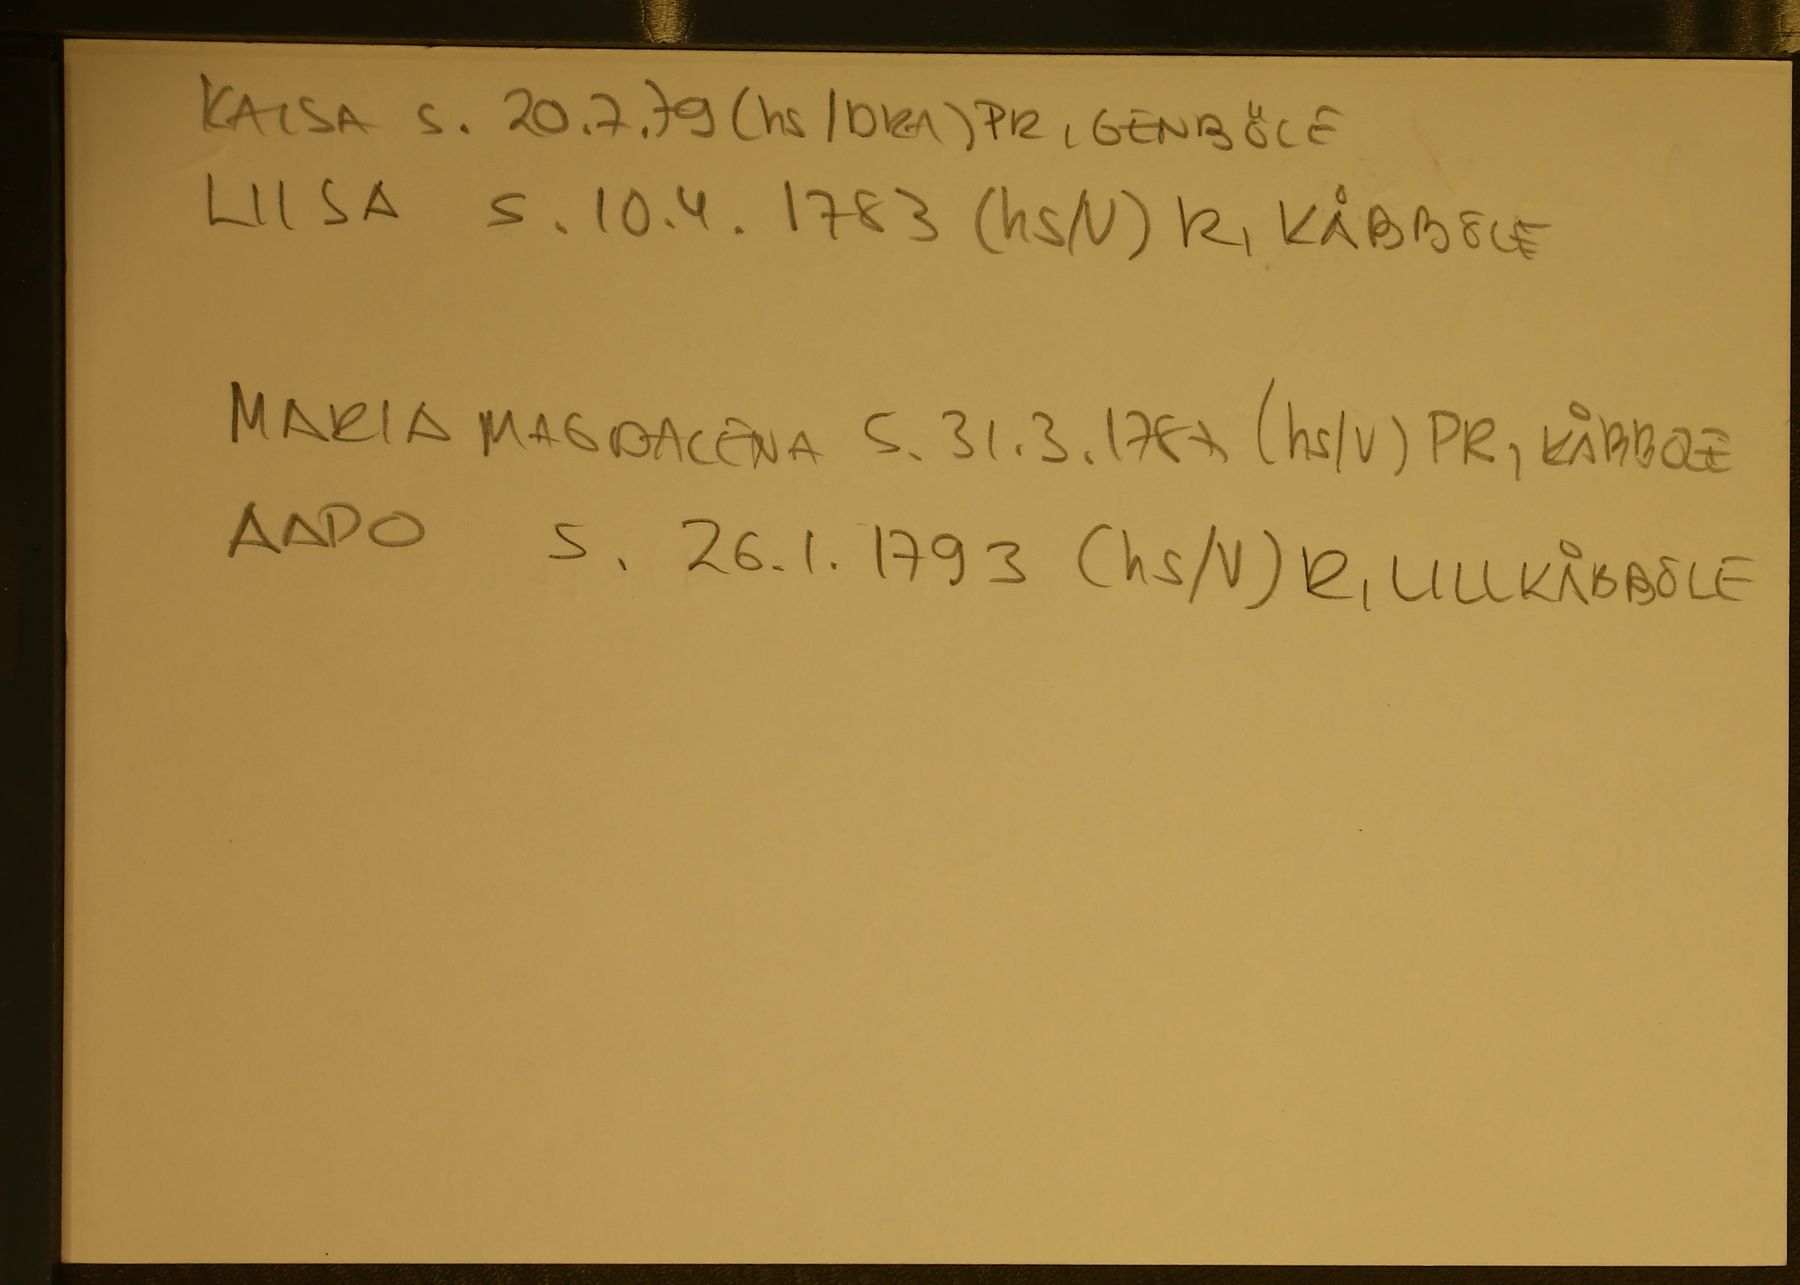 KAISA S. 20.7.79 (hs/DRA) PR, GENBÖLE
LIISA S. 10.4. 1783 (hs/V) R, KÅBBÖLE
MARIA MAGDALENA S. 31.3.1787 (hs/V) PR, KÅBBÖLE
AAPO S. 26.1. 1793 (hs/V) R, LILLKÅBBÖLE